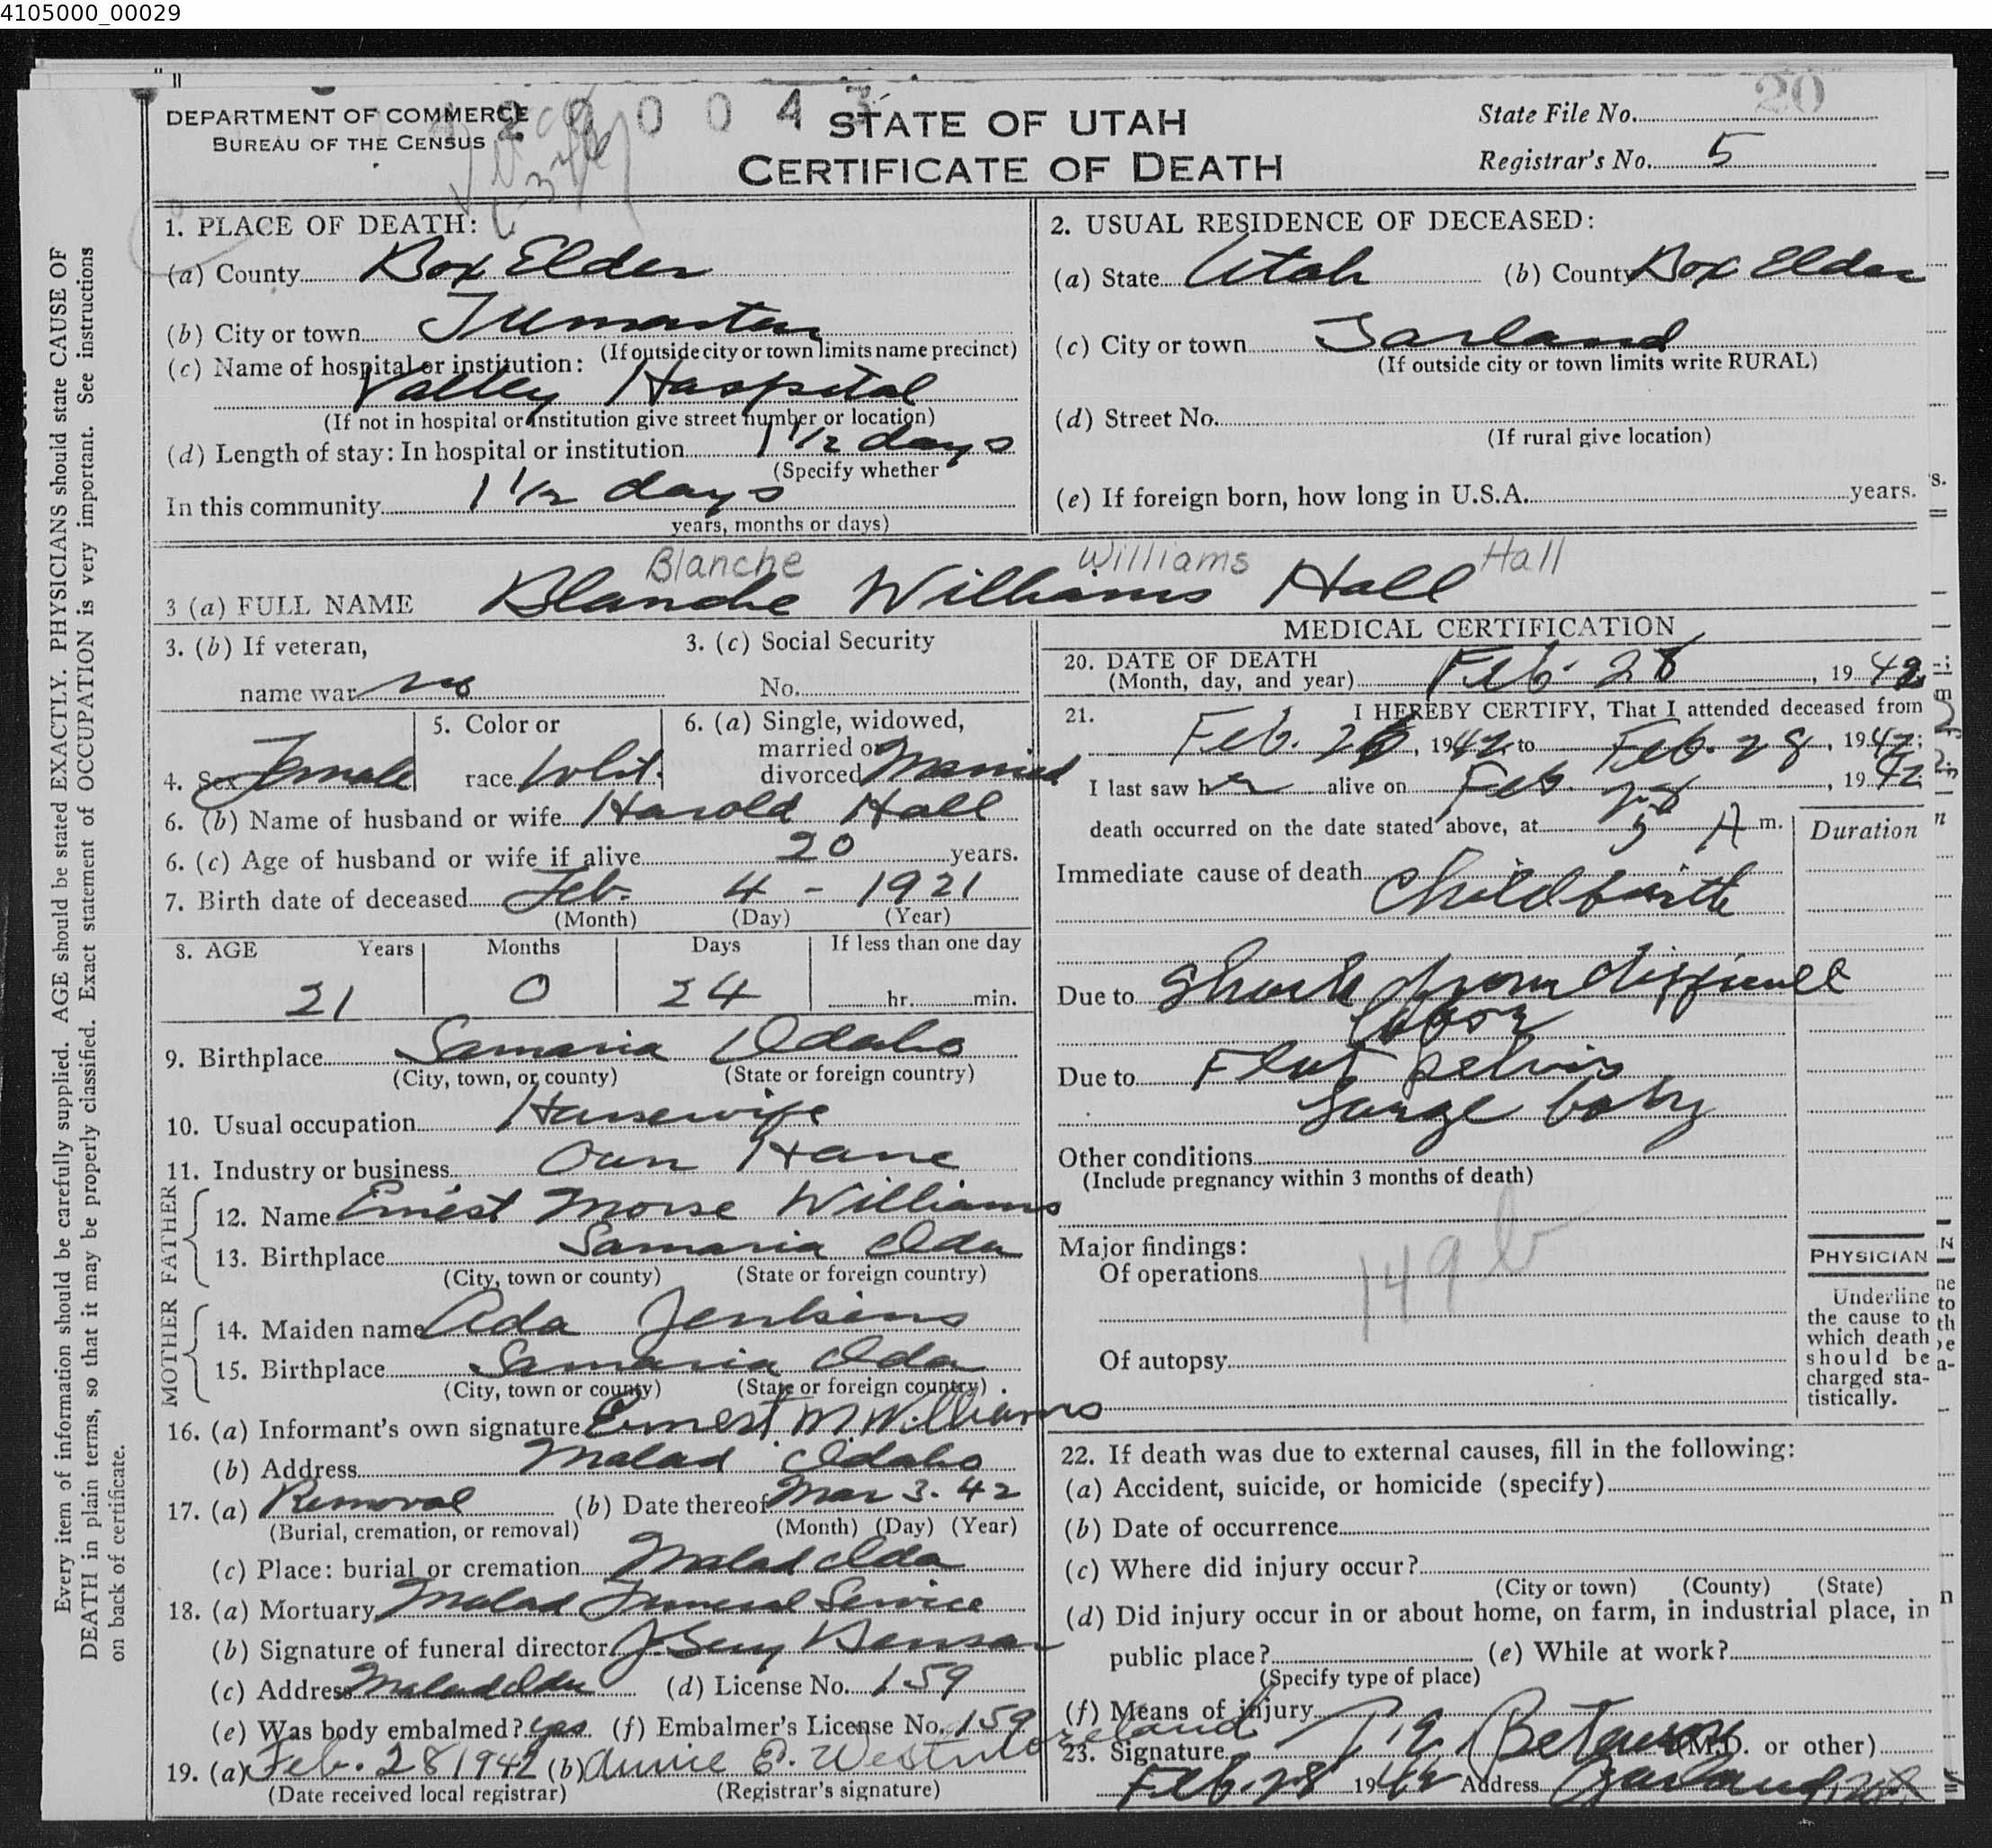 4105000_00029
20
DEPARTMENT OF COMMERCE
BUREAU OF THE CENSUS
4 2 0 0 0 4 3
STATE OF UTAH
CERTIFICATE OF DEATH
State File No.
Registrar's No. 5
Every item of information should be carefully supplied. AGE should be stated EXACTLY. PHYSICIANS should state CAUSE OF
DEATH in plain terms, so that it may be properly classified. Exact statement of OCCUPATION is very important. See instructions
on back of certificate.
1. PLACE OF DEATH:
(a) County Box Elder
(b) City or town Tremonton
(If outside city or town limits name precinct)
(c) Name of hospital or institution:
Valley Hospital
(If not in hospital or institution give street number or location)
(d) Length of stay: In hospital or institution 1 1/2 days
(Specify whether
In this community 1 1/2 days
years, months or days)
2. USUAL RESIDENCE OF DECEASED:
(a) State Utah (b) County Box Elder
(c) City or town Garland
(If outside city or town limits write RURAL)
(d) Street No.
(If rural give location)
(e) If foreign born, how long in U.S.A. years.
Blanche Williams Hall
3 (a) FULL NAME Blanche Williams Hall
3. (b) If veteran,
name war no
3. (c) Social Security
No.
4. Sex Female
5. Color or
race Whit.
6. (a) Single, widowed,
married or
divorced Married
6. (b) Name of husband or wife Harold Hall
6. (c) Age of husband or wife if alive 20 years.
7. Birth date of deceased Feb. 4 - 1921
(Month) (Day) (Year)
8. AGE Years Months Days If less than one day
21 0 24 hr. min.
9. Birthplace Samaria Idaho
(City, town, or county) (State or foreign country)
10. Usual occupation Housewife
11. Industry or business Own Home
FATHER
12. Name Ernest Morse Williams
13. Birthplace Samaria Ida
(City, town or county) (State or foreign country)
MOTHER
14. Maiden name Ada Jenkins
15. Birthplace Samaria Ida
(City, town or county) (State or foreign country)
16. (a) Informant's own signature Ernest M Williams
(b) Address Malad Idaho
17. (a) Removal (b) Date thereof Mar 3. 42
(Burial, cremation, or removal) (Month) (Day) (Year)
(c) Place: burial or cremation Malad Ida
18. (a) Mortuary Malad Funeral Service
(b) Signature of funeral director
(c) Address Malad Ida (d) License No. 159
(e) Was body embalmed? yes (f) Embalmer's License No. 159
19. (a) Feb. 28 1942 (b) Annie E. Westmoreland
(Date received local registrar) (Registrar's signature)
MEDICAL CERTIFICATION
20. DATE OF DEATH
(Month, day, and year) Feb- 28, 1942
21. I HEREBY CERTIFY, That I attended deceased from
Feb. 26, 1942, to Feb. 28, 1942;
I last saw her alive on Feb. 28, 1942;
death occurred on the date stated above, at 5 A m.
Duration
Immediate cause of death Childbirth
Due to Shock from difficult
labor
Due to Flat pelvis
Large baby
Other conditions
(Include pregnancy within 3 months of death)
Major findings:
Of operations
149 b
Of autopsy
PHYSICIAN
Underline
the cause to
which death
should be
charged sta-
tistically.
22. If death was due to external causes, fill in the following:
(a) Accident, suicide, or homicide (specify)
(b) Date of occurrence
(c) Where did injury occur?
(City or town) (County) (State)
(d) Did injury occur in or about home, on farm, in industrial place, in
public place? (e) While at work?
(Specify type of place)
(f) Means of injury
23. Signature (M.D. or other)
Feb. 28 1942 Address Garland